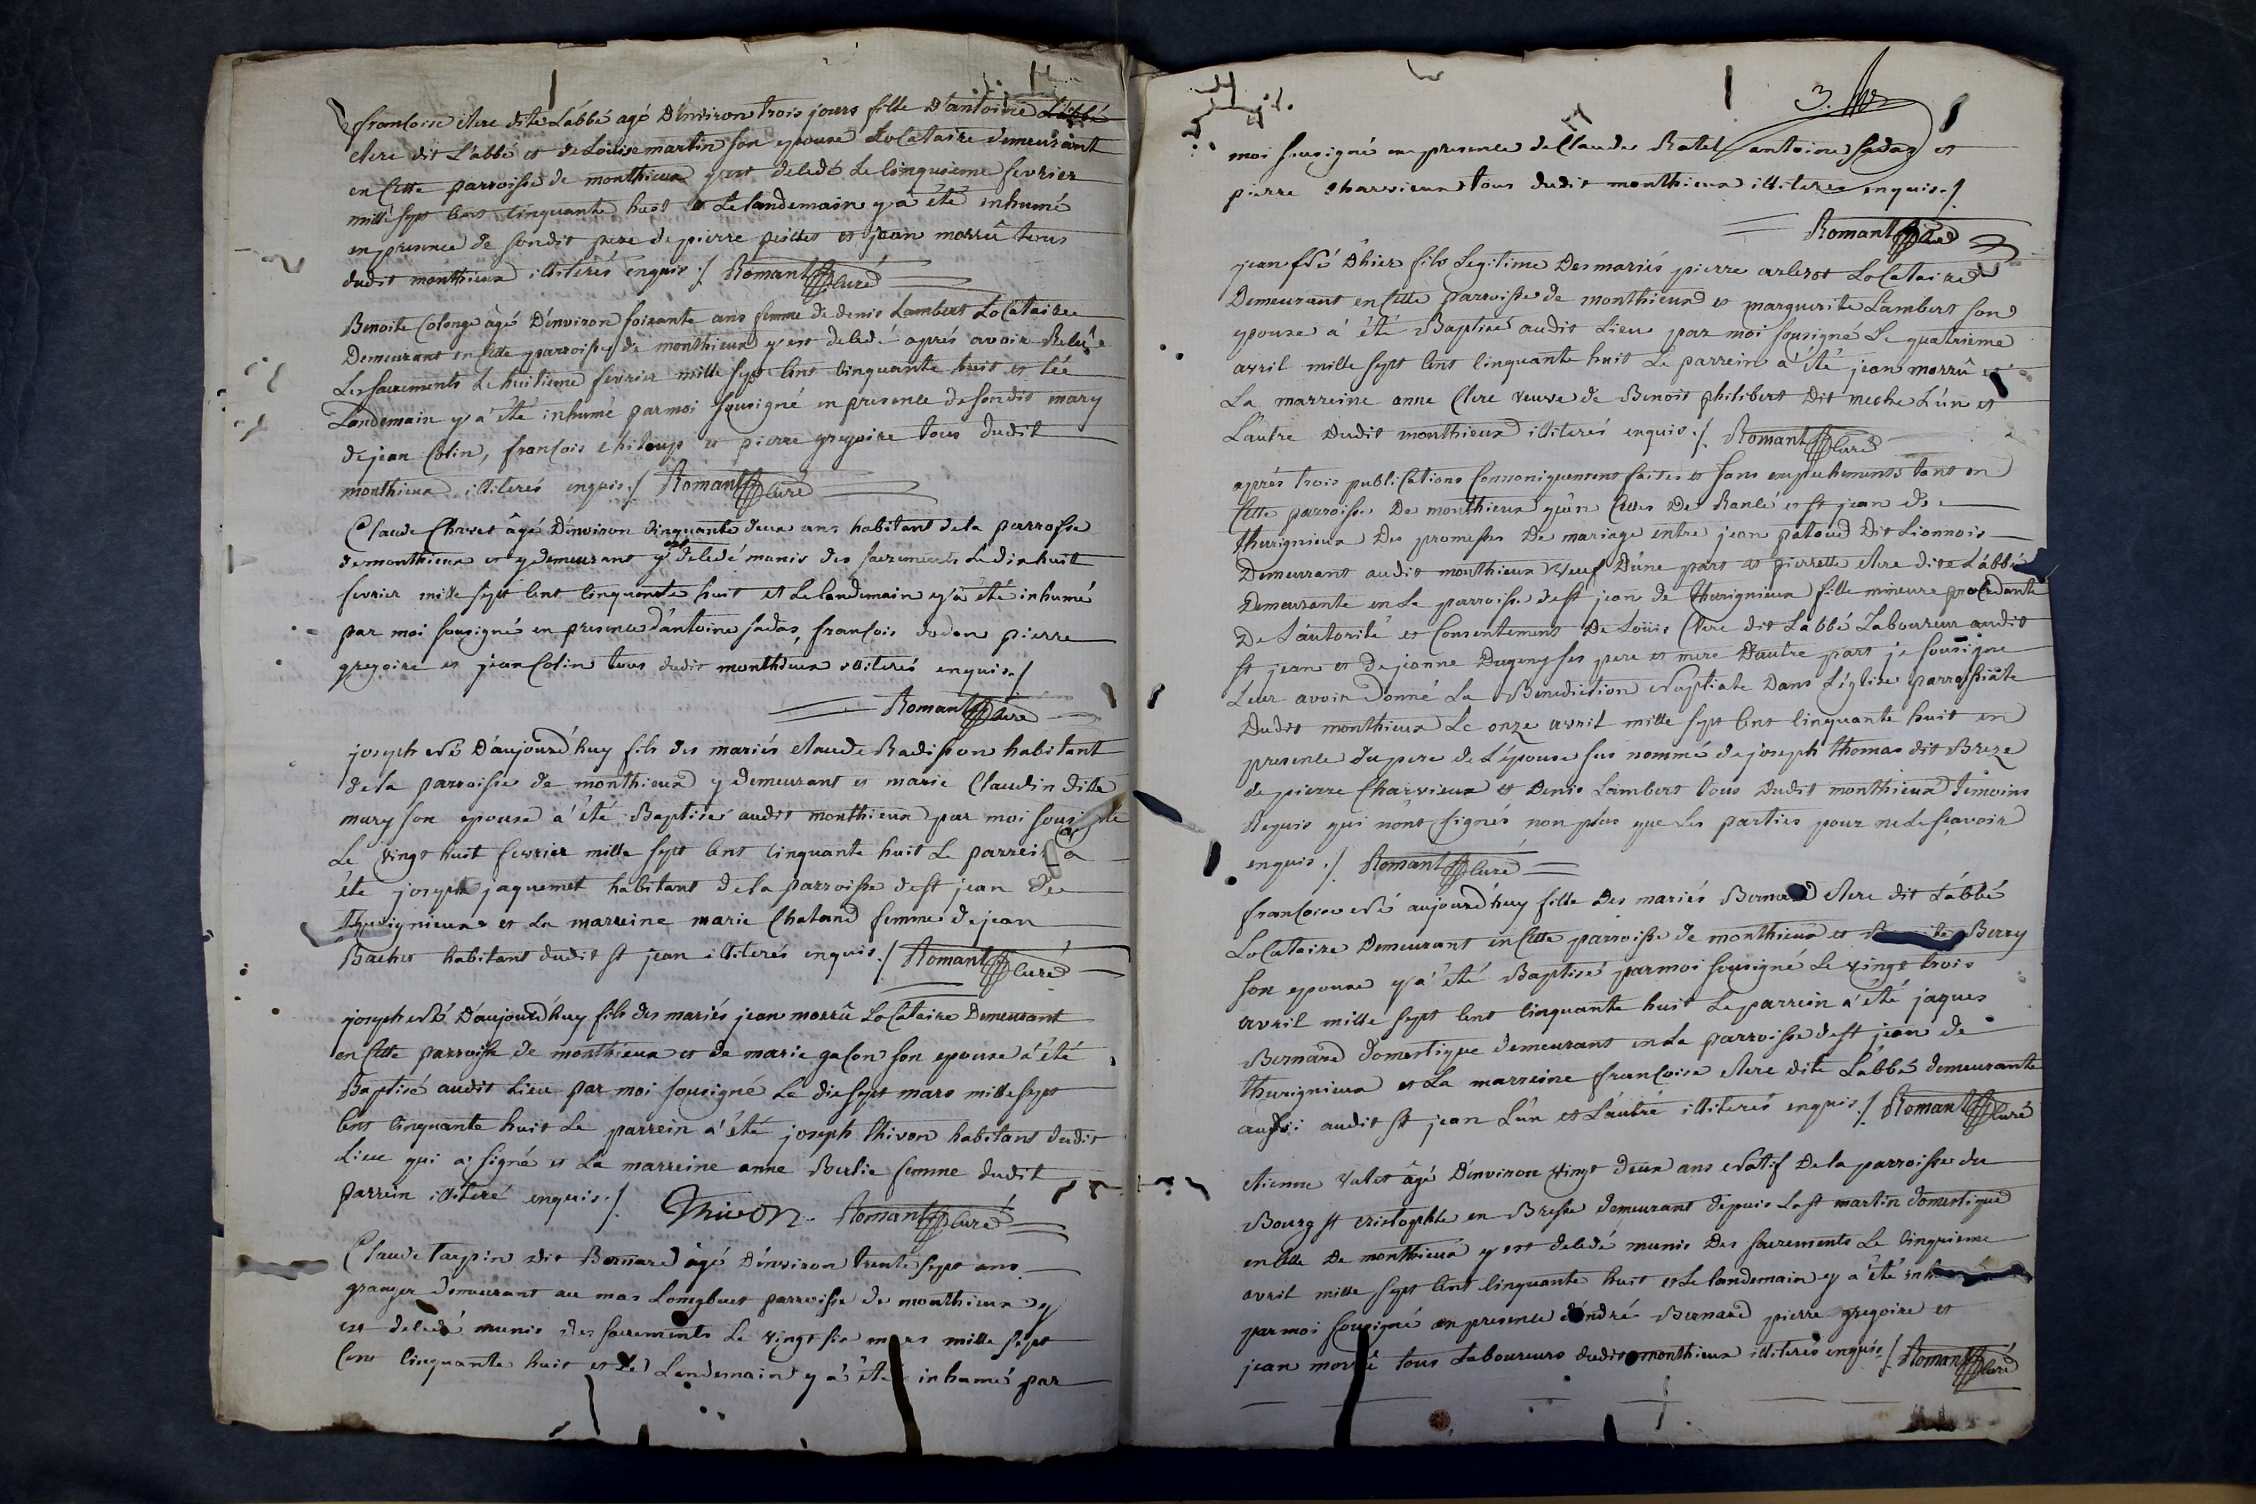 françoise clere dite Labbé agé Denviron trois jours fille D'antoine
clere dit L'abbé et de Loüise martin son epouse Locataire demeurant
en cette parroisse de monthieux y est decedé Le cinquieme fevrier
mille sept cent cinquante huit et Le landemain y a été inhumé
en presence de sondit pere de pierre et jean morrû tous
dudit monthieux illiterés enquis ./. Romant Curé
Benoite Colonge âgé Denviron soixante ans femme de denis Lambert Locataire
Demeurant en cette parroisse de monthieux y est decedé aprés avoir Receu
Les sacrements Le huitieme fevrier mille sept cent cinquante huit et Le
Landemain y a été inhumé par moi sousigné en presence de sondit mary
de jean Colin, françois et pierre gregoire tous dudit
monthieux illiterés enquis ./. Romant Curé
Claude Chavet âgé Denviron Cinquante deux ans habitant de la parroisse
de monthieux et y demeurant y est decedé munis des sacrements Le dixhuit
fevrier mille sept cent cinquante huit et Le landemain y a été inhumé
par moi sousigné en presence d'antoine fadas, françois dodon pierre
gregoire et jean Colin tous dudit monthieux illiterés enquis ./.
Romant Curé
joseph né D'aujourd'huy fils des mariés claude Radisson habitant
de la parroisse de monthieux y demeurant et marie Claudin ditte
mury son epouse a été Baptisé audit monthieux par moi sousigné
Le vingt huit fevrier mille sept cent cinquante huit Le parrein a
été joseph jaquemet habitant de la parroisse de st jean de
Thurignieux et La marreine marie Chatand femme de jean
Bachet habitant dudit st jean illiterés enquis ./. Romant Curé
joseph né D'aujourd'huy fils des mariés jean morrû Locataire Demeurant
en cette parroisse de monthieux et de marie gacon son epouse a été
Baptisé audit Lieu par moi sousigné Le dixsept mars mille sept
cent cinquante huit Le parrein a été joseph thivon habitant dudit
Lieu qui a signé et La marreine anne Berlie femme dudit
parrein illiteré enquis ./. Thivon. Romant Curé
Claude Taupin dit Bernard âgé Denviron trente sept ans
granger demeurant au mas parroisse de monthieux y
est decedé munis des sacrements Le vingt six mars mille sept
cent cinquante huit et Le Landemain y a été inhumé par
3.
moi sousigné en presence de Claude Ratel antoine fadas et
pierre Charvieux tous dudit monthieux illiterés enquis ./.
Romant Curé
jean Né D'hier fils Legitime Des mariés pierre arlerot Locataire
Demeurant en cette parroisse de monthieux et marguerite Lambert son
epouse a été Baptisé audit Lieu par moi sousigné Le quatrieme
avril mille sept cent cinquante huit Le parrein a été jean morrû et
La marreine anne Clere veuve de Benoit philibert Dit meche L'ún et
L'autre Dudit monthieux illiterés enquis ./. Romant Curé
aprés trois publications Connoniquement faites et sans empechements tant en
Cette parroisse De monthieux qu'en Celles De Rancé et st jean de
thurignieux Des promesses De mariage entre jean patoud Dit Lionnois
Demeurant audit monthieux veuf D'úne part et pierrette clere dite L'abbé
Demeurante en La parroisse de st jean de thurignieux fille mineure procedante
De L'autorité et Consentement De Loüis Clere dit Labbé Laboureur audit
st jean et de jeanne Dugeny ses pere et mere D'autre part je sousigné
Leur avoir donné La Benediction Nuptiale Dans L'église parroissiale
Dudit monthieux Le onze avril mille sept cent cinquante huit en
presence du pere de L'épouse sus nommé de joseph thomas dit Breze
de pierre Charvieux et Denis Lambert tous Dudit monthieux temoins
Requis qui n'ont signés non plus que Les parties pour ne Le sçavoir
enquis ./. Romant Curé
françoise née aujourd'huy fille Des mariés Bernard clere dit L'abbé
Locataire Demeurant en Cette parroisse de monthieux et Berry
son epouse y a été Baptisé par moi sousigné Le vingt trois
avril mille sept cent cinquante huit Le parrein a été jaques
Bernard domestique demeurant en La parroisse de st jean de
thurignieux et La marreine françoise clere dite L'abbé demeurante
aussi audit st jean L'ún et L'autre illiterés enquis ./. Romant Curé
etienne Valet âgé D'environ vingt deux ans Natif De la parroisse du
Bourg st cristophle en Bresse demeurant depuis La st martin domestique
en Celle De monthieux y est decedé munis Des sacrements Le Cinquieme
avril mille sept cent cinquante huit et Le landemain y a été
par moi sousigné en presence d'andré Bernard pierre gregoire et
jean morrû tous Laboureurs dudit monthieux illiterés enquis ./. Romant Curé